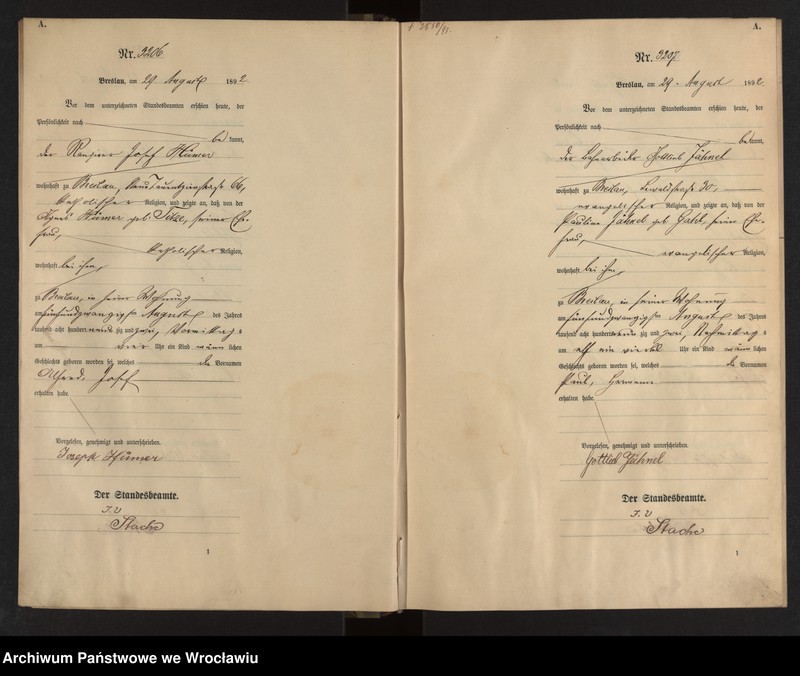 A.
Nr. 3206
Breslau, am 29. August 1892.
Vor dem unterzeichneten Standesbeamten erschien heute, der
Persönlichkeit nach
bekannt,
der Rangirer Josef Hümer
wohnhaft zu Breslau, 66,
katholischer Religion, und zeigte an, daß von der
Agnes Hümer geb. seiner Ehe-
frau,
katholischer Religion,
wohnhaft bei ihm,
zu Breslau, in seiner Wohnung
am fünfundzwanzigsten August des Jahres
tausend acht hundert neunzig und zwei, Vormittags
um vier Uhr ein Kind männlichen
Geschlechts geboren worden sei, welches die Vornamen
Alfred, Josef
erhalten habe.
Vorgelesen, genehmigt und unterschrieben.
Joseph Hümer
Der Standesbeamte.
I. V
Stache
1
A.
Nr. 3207
Breslau, am 29. August 1892.
Vor dem unterzeichneten Standesbeamten erschien heute, der
Persönlichkeit nach
bekannt,
der Gottlieb Jähnel
wohnhaft zu Breslau, 30,
evangelischer Religion, und zeigte an, daß von der
Pauline Jähnel geb. seiner Ehe-
frau,
evangelischer Religion,
wohnhaft bei ihm,
zu Breslau, in seiner Wohnung
am fünfundzwanzigsten August des Jahres
tausend acht hundert neunzig und zwei, Nachmittags
um elf ein viertel Uhr ein Kind männlichen
Geschlechts geboren worden sei, welches die Vornamen
Paul, Hermann
erhalten habe.
Vorgelesen, genehmigt und unterschrieben.
Gottlieb Jähnel
Der Standesbeamte.
I. V
Stache
1
Archiwum Państwowe we Wrocławiu